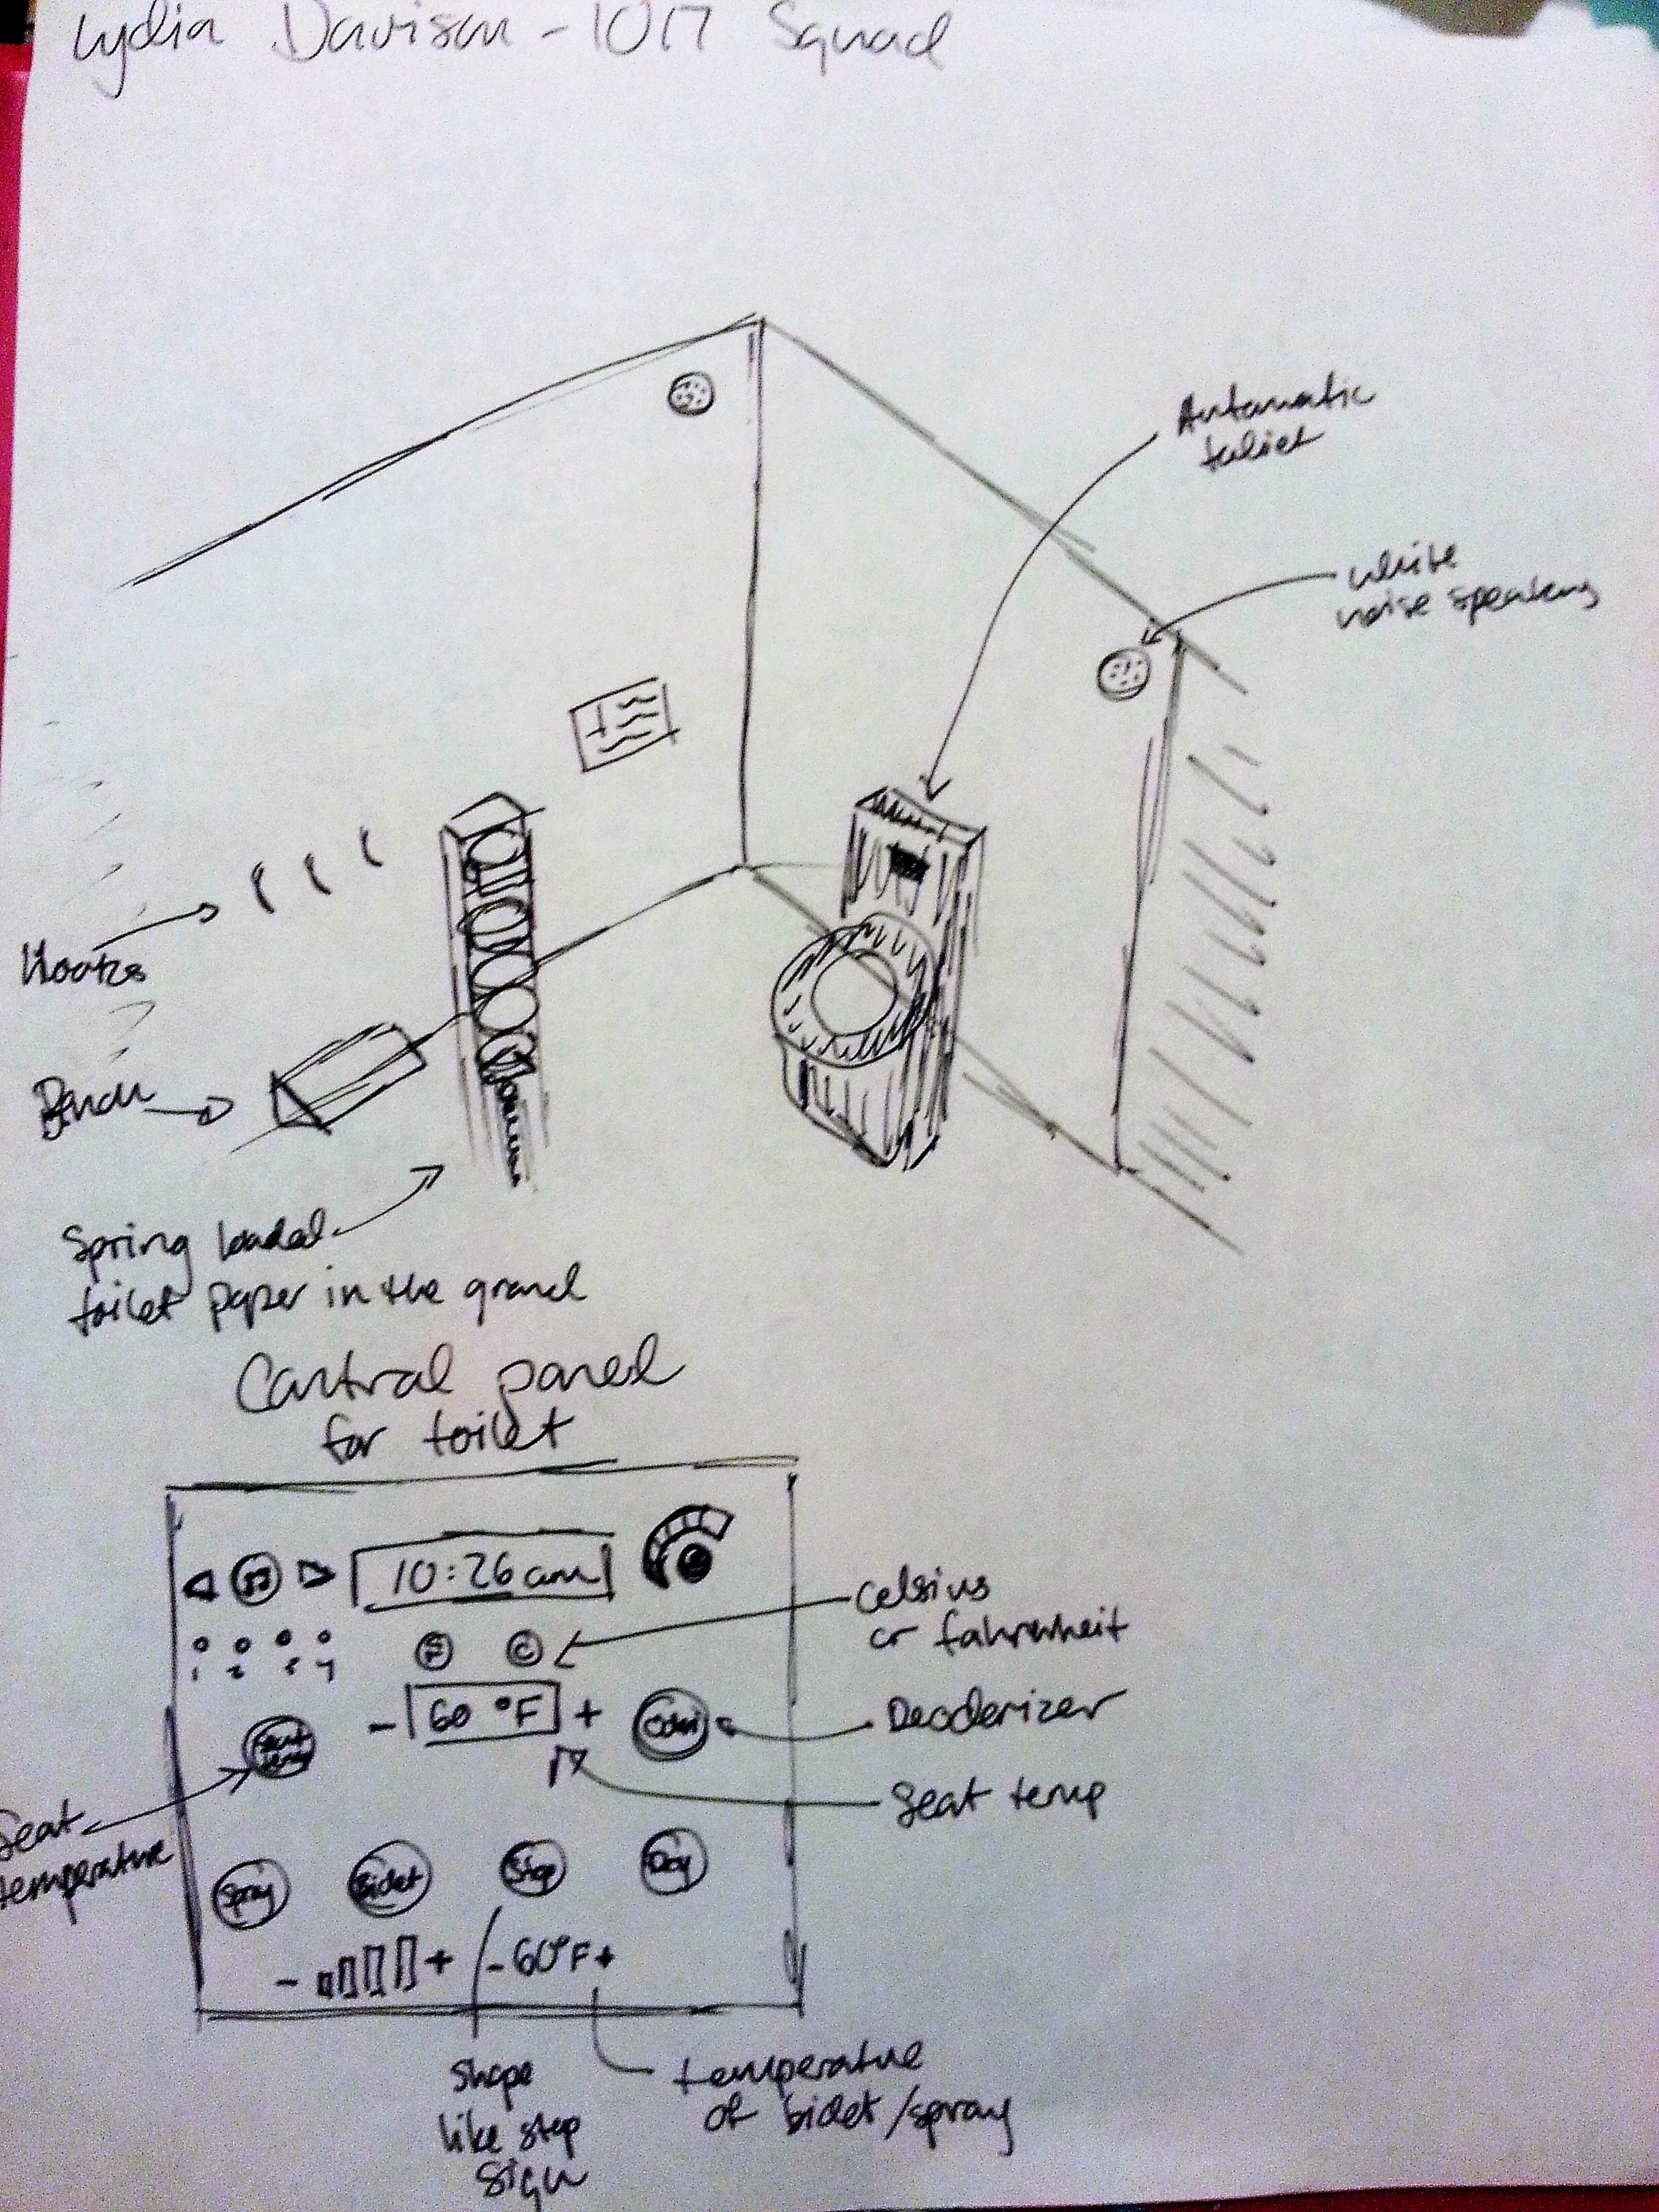 Lydia Davison - 1017 Squad
Automatic
toliet
white
noise speakers
Hooks
Bench
Spring loaded
toilet paper in the ground
Control panel
for toilet
10:26am
Celsius
or fahrenheit
F C
1 2 3 4
- 60 °F +
Odor
Deoderizer
Seat temp
Seat
temperature
Spray Bidet Stop Dry
- + - 60°F +
shape
like stop
sign
temperature
of bidet/spray